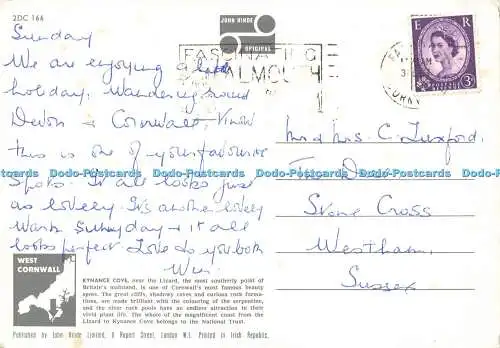 2DC 166
JOHN HINDE
ORIGINAL
FASCINATING
FALMOUTH
E R
POSTAGE REVENUE
3D
Sunday
We are enjoying a
holiday. Wandering round
Devon & Cornwall, I know
this is one of your favourite
spots. It all looks just
as lovely. It's another lovely
warm sunny day & it all
looks perfect. Love to you both
Win.
Mr & Mrs C. Luxford.
Stone Cross
Westham.
Sussex
Word-Postcards-Delcampe Word-Postcards-Delcampe Word-Postcards-Delcampe
WEST
CORNWALL
KYNANCE COVE, near the Lizard, the most southerly point of
Britain's mainland, is one of Cornwall's most famous beauty
spots. The great cliffs, shadowy caves and curious rock forma-
tions, are made brilliant with the colouring of the serpentine,
and the clear rock pools have an endless attraction in their
vivid plant life. The whole of the magnificent coast from the
Lizard to Kynance Cove belongs to the National Trust.
Published by John Hinde Limited, 6 Rupert Street, London W.1. Printed in Irish Republic.